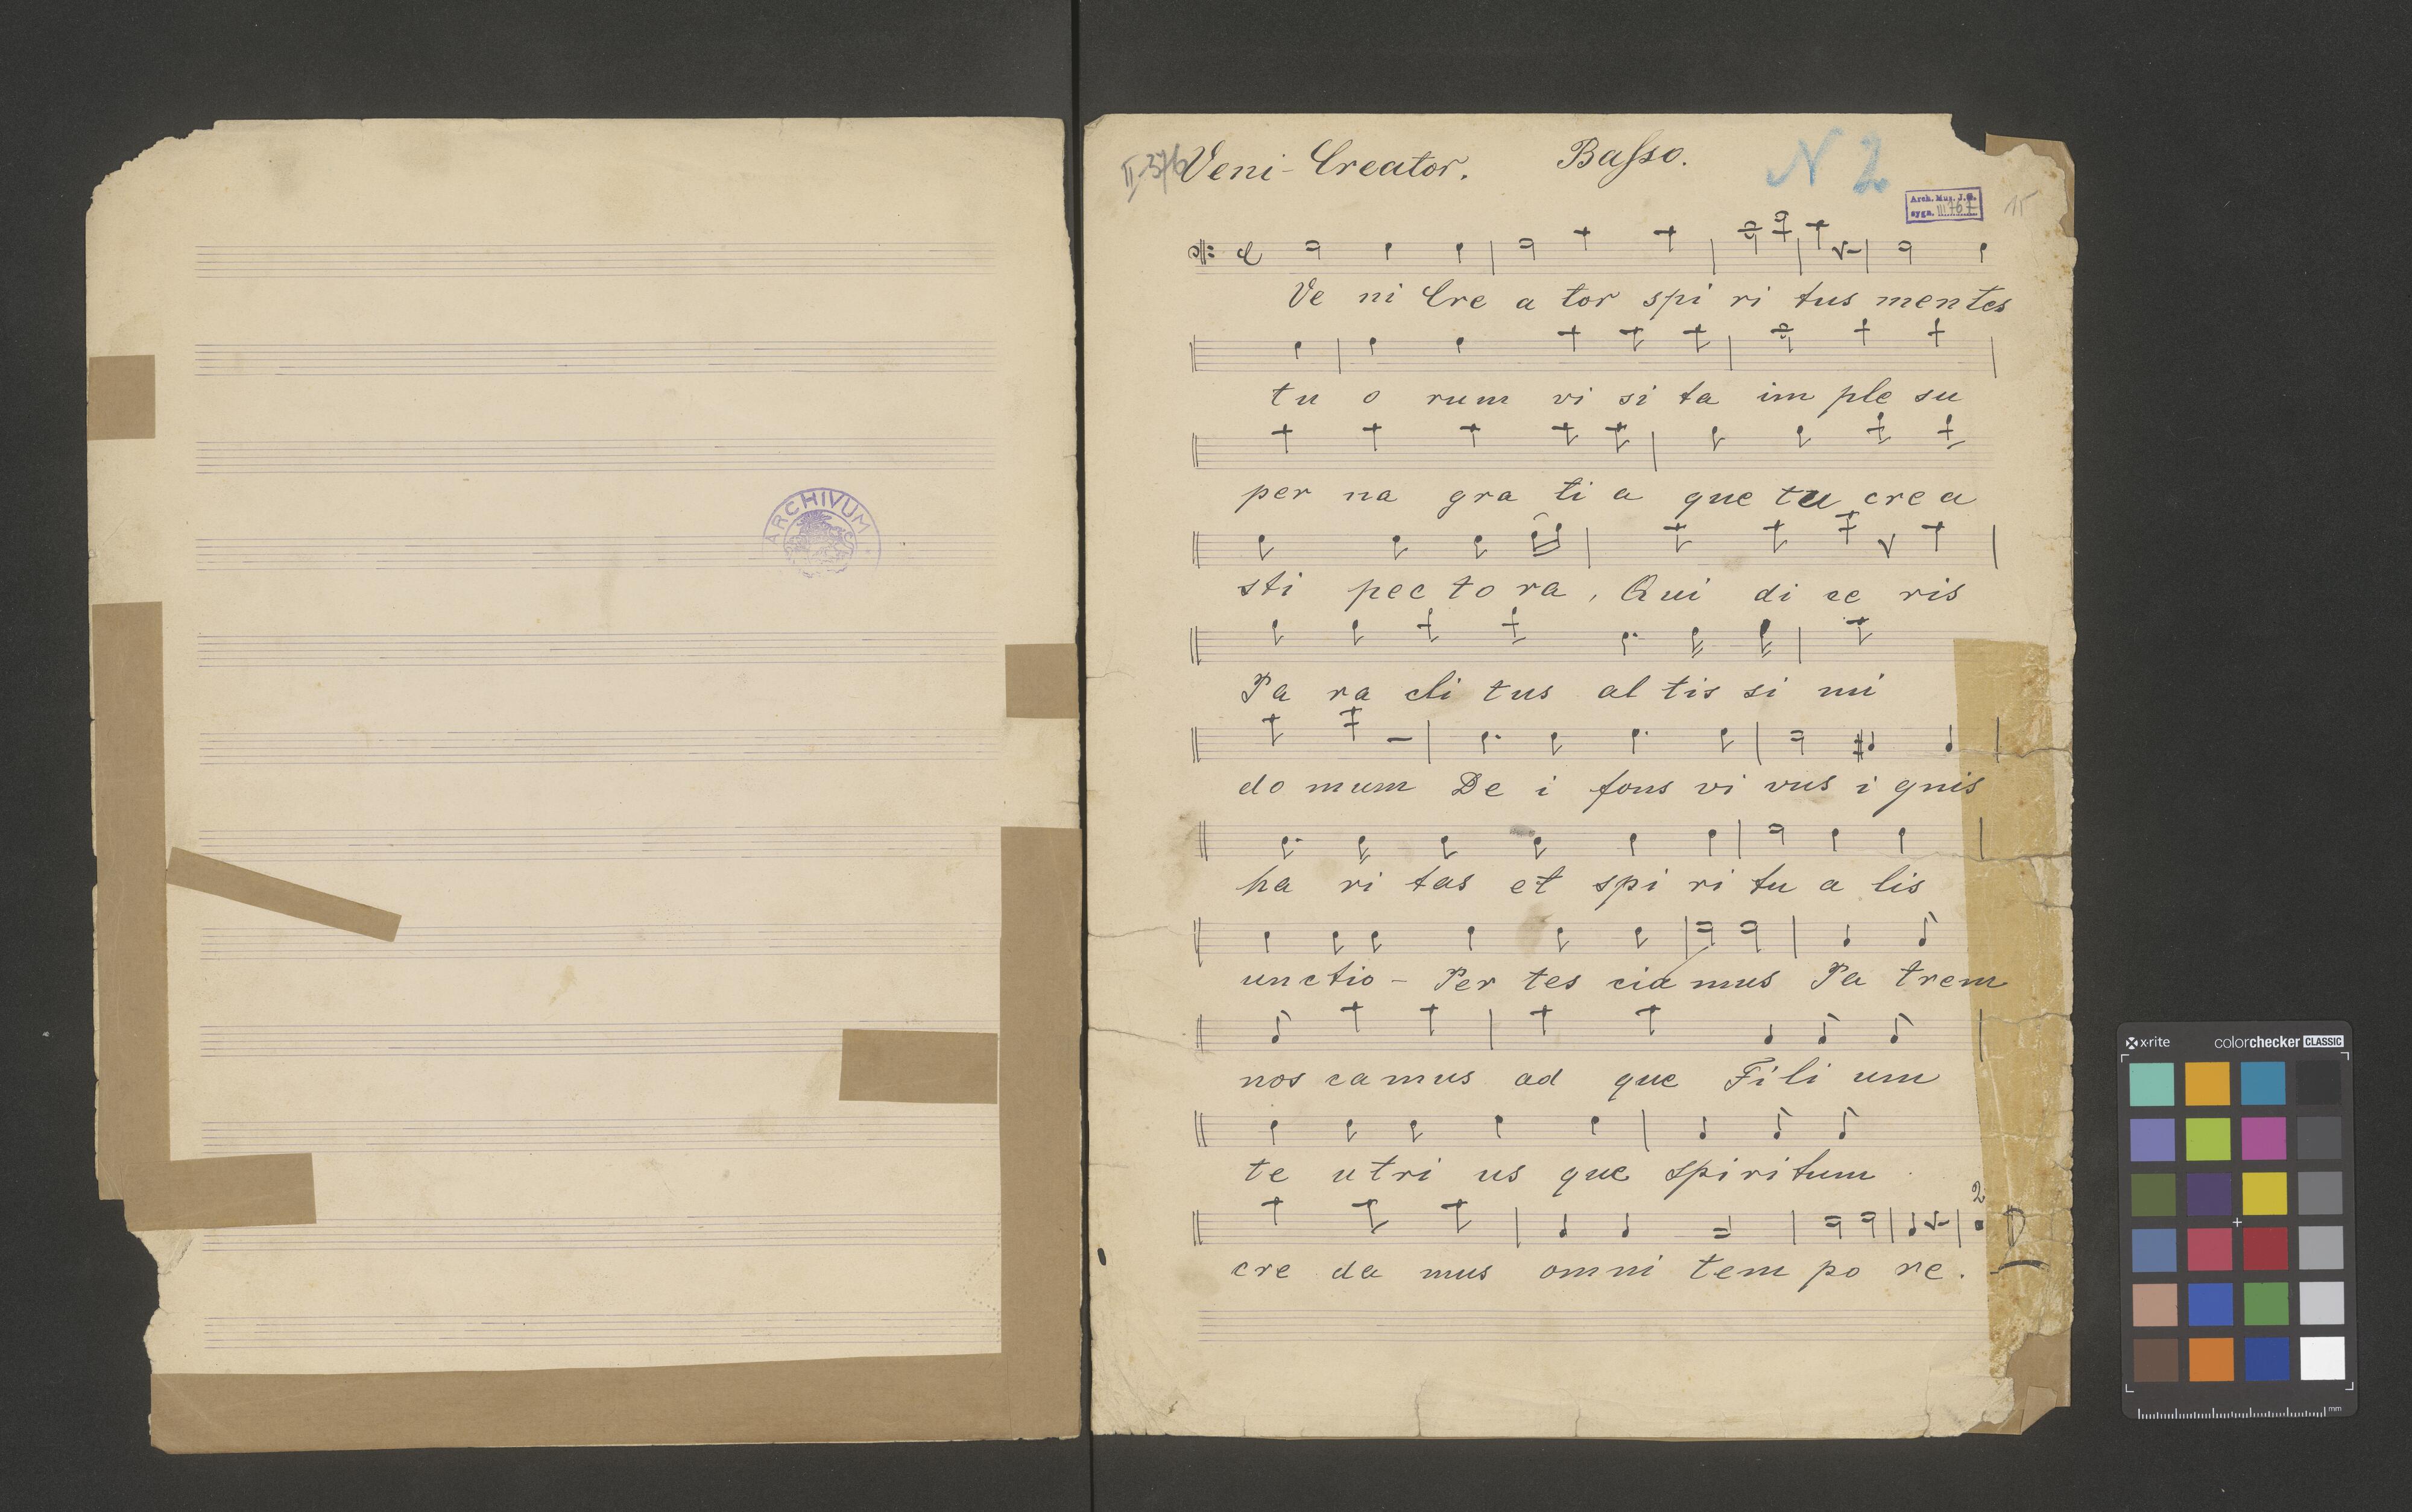 ARCHIVUM
II-376 Veni-Creator. Baſso. N 2
Arch. Mus. J.G.
sygn. III 767
15
Ve ni Cre a tor spi ri tus mentes
tu o rum vi si ta im ple su
per na gra ti a que tu cre a
sti pec to ra, Qui di ce ris
Pa ra cli tus al tis si mi
do mum De i fons vi vus i gnis
ha ri tas et spi ri tu a lis
unctio - Per tes cia mus Pa trem
nos camus ad que Fi li um
te utri us que spiritum
2
cre da mus omni tem po re.
x-rite colorchecker CLASSIC
mm